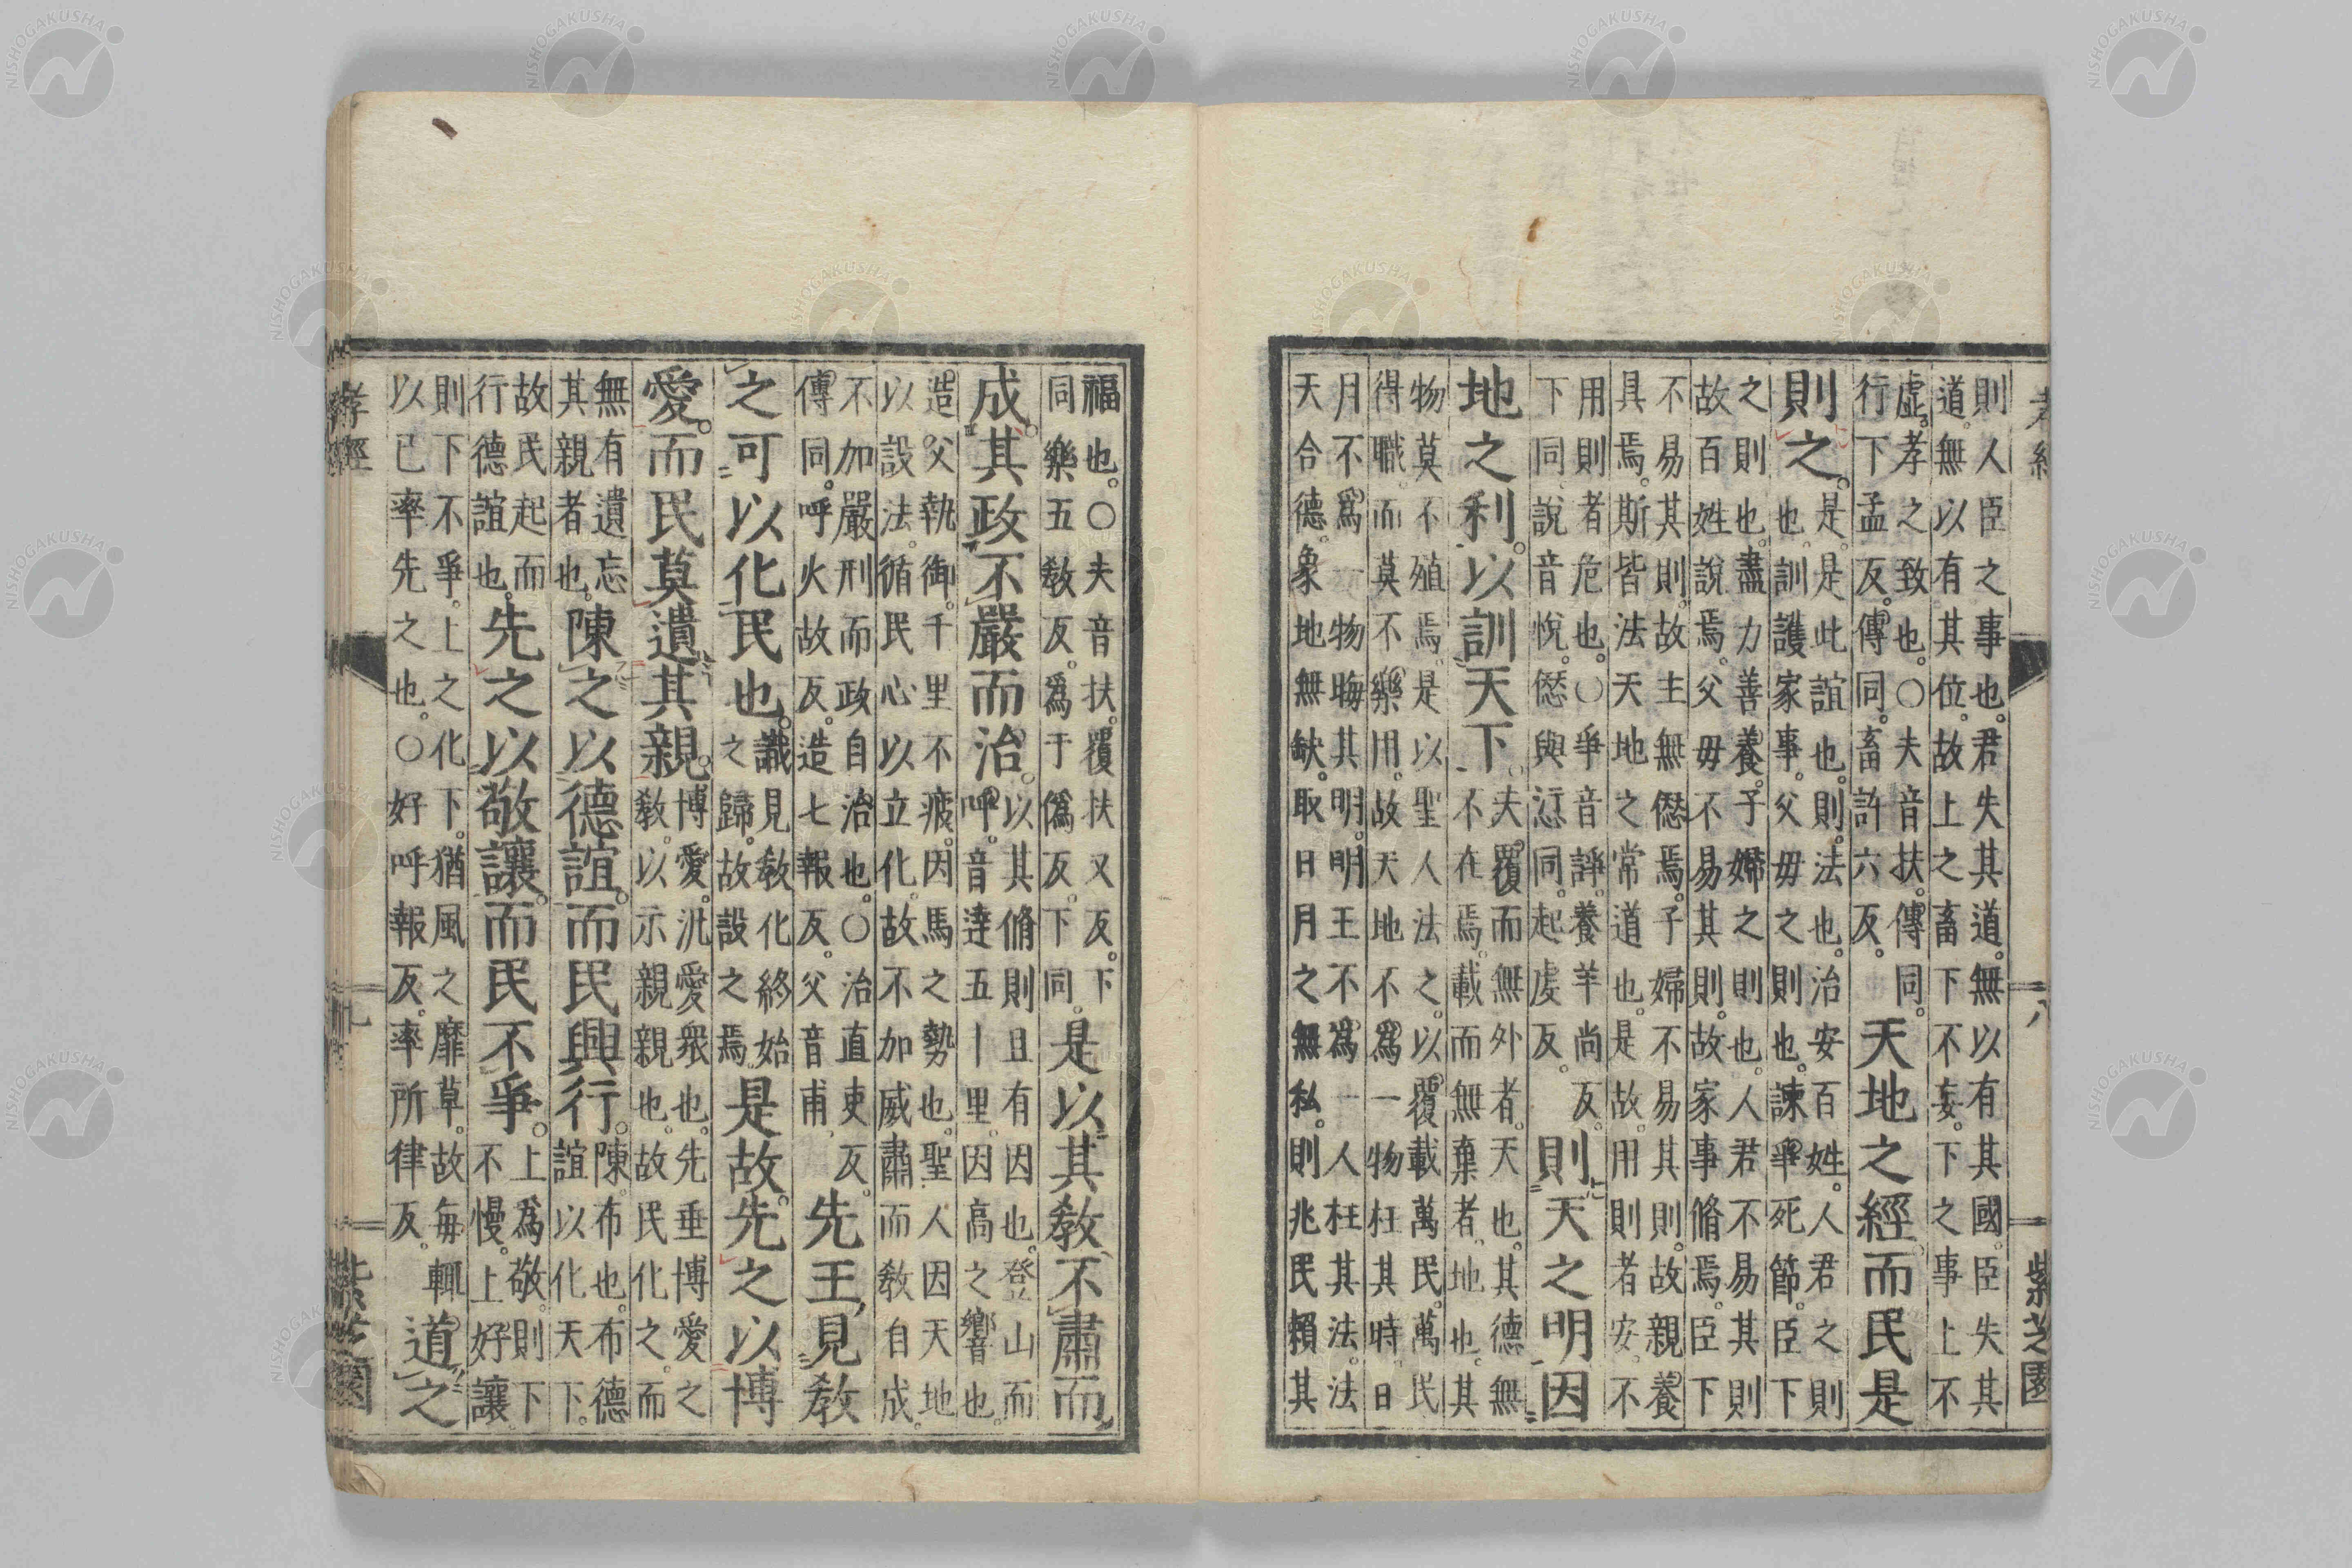 孝經　八　紫芝園
則人臣之事也。君失其道。無以有其國。臣失其
道。無以有其位。故上之畜下不妄。下之事上不
虛。孝之致也。○夫音扶。傳同。
行下孟反。傳同。畜許六反。
天地之經而民是
則之。
是。是此誼也。則。法也。治安百姓。人君之則
也。訓護家事。父母之則也。諫爭死節。臣下
之則也。盡力善養。子婦之則也。人君不易其則
故百姓說焉。父母不易其則。故家事脩焉。臣下
不易其則。故主無僁焉。子婦不易其則。故親養
具焉。斯皆法天地之常道也。是故。用則者安。不
用則者危也。○爭音諍。養羊尚反。
下同。說音悅。僁與愆同。起虔反。
則天之明因
地之利。以訓天下。
夫。覆而無外者。天也。其德無
不在焉。載而無棄者。地也。其
物莫不殖焉。是以聖人法之。以覆載萬民。萬民
得職。而莫不樂用。故天地不爲一物枉其時。日
月不爲一物晦其明。明王不爲一人枉其法。法
天合德。象地無缺。取日月之無私。則兆民賴其
福也。○夫音扶。覆扶又反。下
同。樂五教反。爲于僞反。下同。
是以其教。不肅而
成。其政不嚴而治。
以其脩則且有因也。登山而
呼。音達五十里。因高之響也。
造父執御。千里不疲。因馬之勢也。聖人因天地
以設法。循民心以立化。故不加威肅而教自成。
不加嚴刑而政自治也。○治直吏反。
傳同。呼火故反。造七報反。父音甫。
先王見教
之可以化民也。
識見教化終始
之歸。故設之焉。
是故。先之以博
愛。而民莫遺其親。
博愛。汎愛衆也。先垂博愛之
教。以示親親也。故民化之。而
無有遺忘
其親者也。
陳之以德誼。而民興行。
陳。布也。布德
誼以化天下。
故民起而
行德誼也。
先之以敬讓。而民不爭。
上爲敬。則下
不慢。上好讓
則下不爭。上之化下。猶風之靡草。故每輒
以己率先之也。○好呼報反。率所律反。
道之
孝經　九　紫芝園